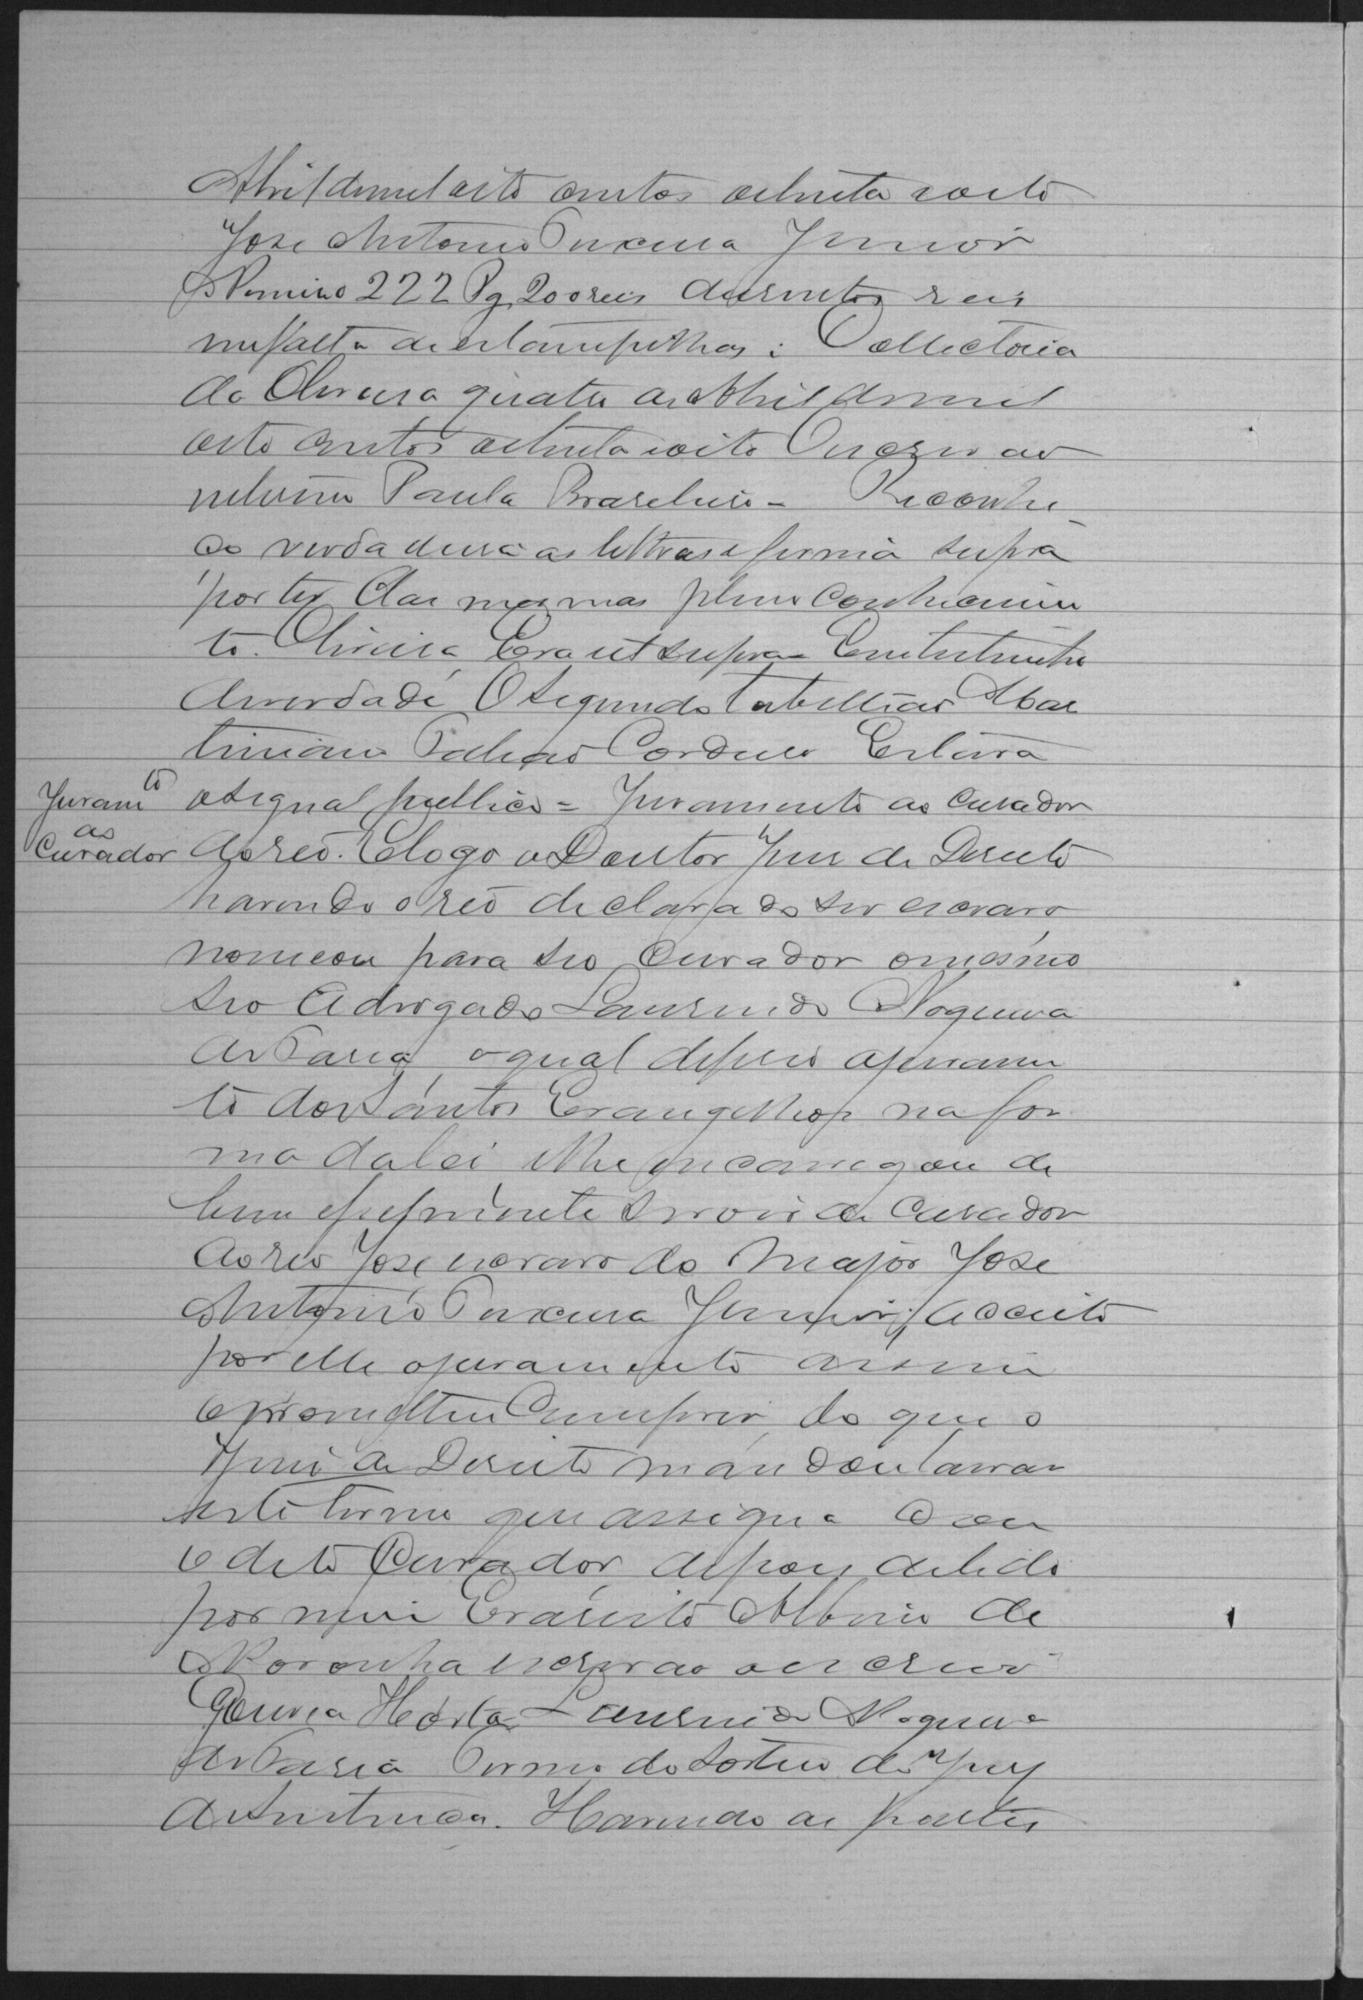 Abril de mil oito centos oitenta e oito
Jose Antonio Teixeira Junior
Numero 222 Pg 200 reis duzentos reis
na falta de estampilhas: Collectoria
da Oliveira quatro de Abril de mil
oito centos oitenta e oito O escrivão
interino Paula Brasiliense - Reconhe
ço verdadeira as lettras e firma supra
por ter das mesmas pleno conhecimen
to. Oliveira, Era ut supra = Em testemunho
da verdade O segundo Tabellião
Cordeiro Estava
Juramto o signal publico = Juramento ao Curador
ao
Curador do reo. E logo o Doutor Juiz de Direito
havendo o reo declarado ser escravo
nomeou para seo Curador o mesmo
seo Advogado Laurindo Nogueira
de Faria, o qual deferio o juramen
to dos Santos Evangelhos na for
ma da lei e lhe encarregou de
bem e fielmente servir de Curador
ao reo José escravo do Major Jose
Antonio Teixeira Junior; acceito
por elle o juramento assim
o prometteu cumprir, do que o
Juiz de Direito mandou lavrar
este termo que assigna com
o dito Curador, depois de lido
por mim Evaristo Albino de
Noronha escrivão o escrevi
Gouvea Horta - Laurindo Nogueira
de Faria Termo do sorteio do Jury
de Sentença. Havendo as partes